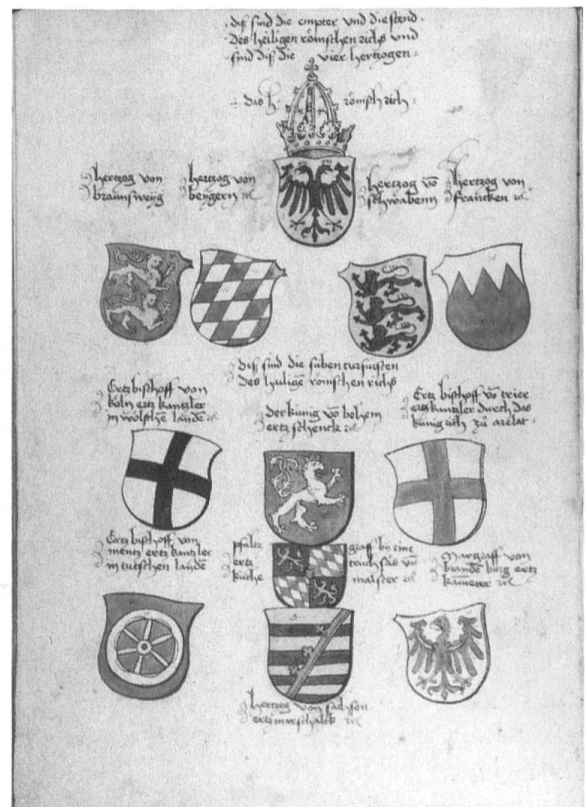 diß sind die empter und die stend
des heiligen römschen richs und
sind diß die vier hertzogen
das h. römsch rich
hertzog von
braunsweyg
hertzog von
beyern ꝛc
hertzog vō
schwabenn
hertzog von
francken ꝛc
diß sind die süben curfursten
des heiligē römschen richs
Ertzbischoff von
köln ertz kantzler
in wölschē landē ꝛc
der künig vō behem
ertz schenck ꝛc
Ertz bischoff vō trier
ertzkantzler durch das
künigrich zu arelat
Ertz bischoff von
mentz ertz kantzler
in tutschen landē
pfaltz graff by rine
ertz truchsäs un
küche maister ꝛc
Margraff von
brandē burg ertz
kamerer ꝛc
hertzog von sachson
ertzmarschalck ꝛc